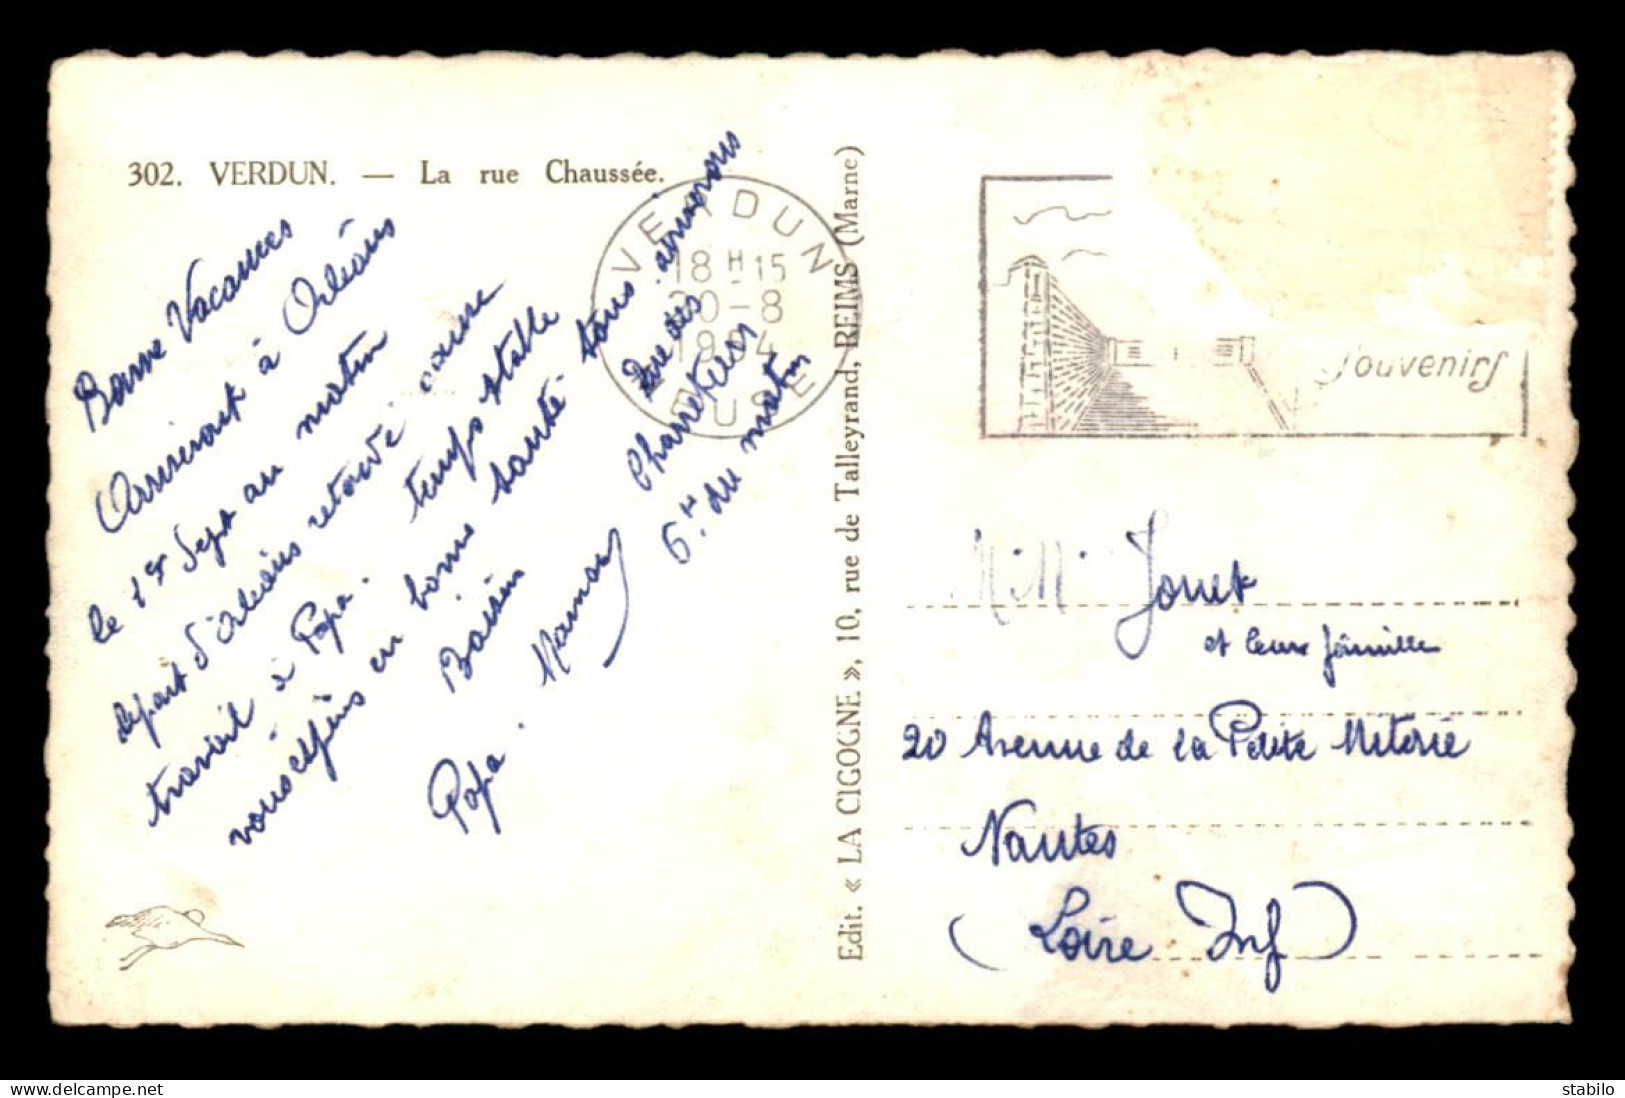 302. VERDUN. — La rue Chaussée.
Bonne Vacances
Arriveront à Orléans
le 1er Sept au matin
départ d'Orléans retardé cause
travail à Papa. temps stable
vous espérons en bonne santé tous arriverons
Rue des
Charretiers
6.H du matin
Baisers
Papa. Maman
VERDUN
18 H 15
20-8
19 4
MEUSE
Souvenirs
Edit. « LA CIGOGNE », 10, rue de Talleyrand, REIMS (Marne)
M. M. Jouet
et leur famille
20 Avenue de la Petite Mitrie
Nantes
(Loire Inf)
delcampe.net
stabilo